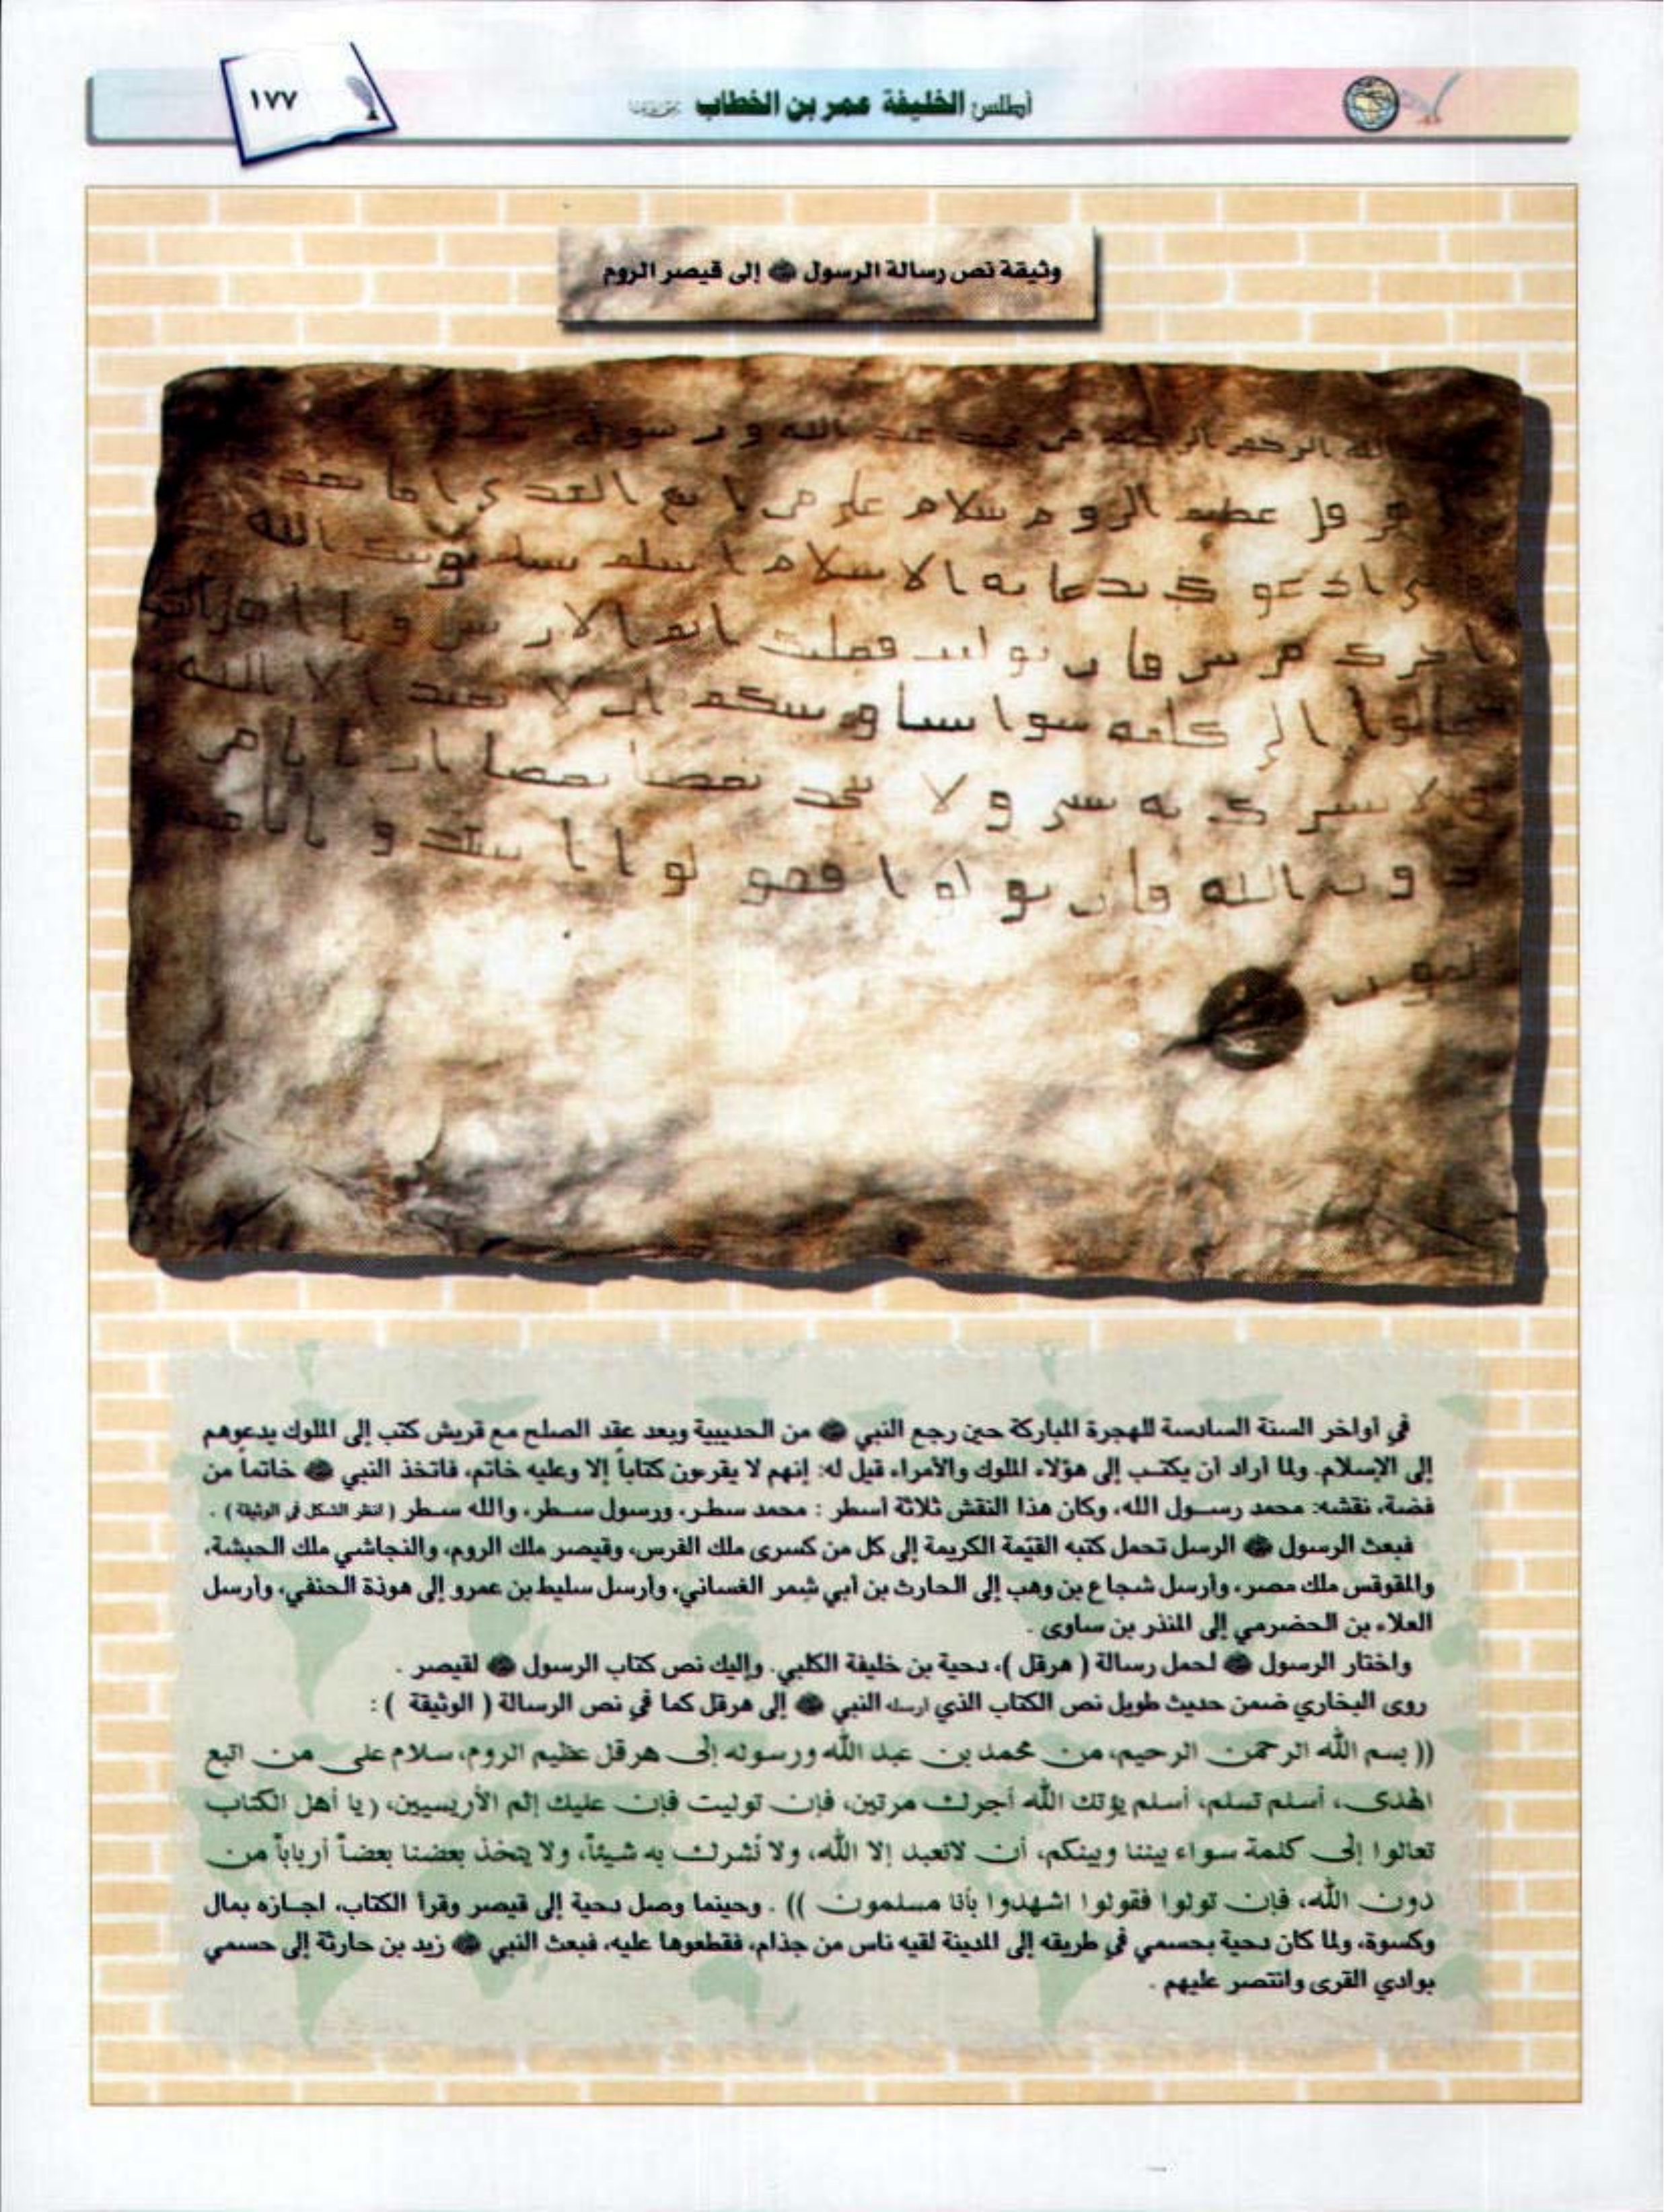 ١٧٧
أطلس الخليفة عمر بن الخطاب
وثيقة نص رسالة الرسول ﷺ إلى قيصر الروم
الله الرحمن الرحيم من محمد عبد الله ورسوله
هرقل عظيم الروم سلام على من اتبع الهدى اما بعد
ادعوك بدعاية الاسلام اسلم تسلم يوتك الله
اجرك مرتين فان توليت فعليك اثم الاريسين ويا اهل الكتب
تعالوا الى كلمة سوا بيننا وبينكم ان لا نعبد الا الله
ولا نشرك به شيا ولا يتخذ بعضنا بعضا اربابا من
دون الله فان تولوا فقولوا اشهدوا بانا مسلمون
في أواخر السنة السادسة للهجرة المباركة حين رجع النبي ﷺ من الحديبية وبعد عقد الصلح مع قريش كتب إلى الملوك يدعوهم
إلى الإسلام. ولما أراد أن يكتب إلى هؤلاء الملوك والأمراء قيل له: إنهم لا يقرءون كتاباً إلا وعليه خاتم، فاتخذ النبي ﷺ خاتماً من
فضة، نقشه: محمد رسول الله، وكان هذا النقش ثلاثة أسطر : محمد سطر، ورسول سطر، والله سطر ( انظر الشكل في الوثيقة ) .
فبعث الرسول ﷺ الرسل تحمل كتبه القيّمة الكريمة إلى كل من كسرى ملك الفرس، وقيصر ملك الروم، والنجاشي ملك الحبشة،
والمقوقس ملك مصر، وأرسل شجاع بن وهب إلى الحارث بن أبي شمر الغساني، وأرسل سليط بن عمرو إلى هوذة الحنفي، وأرسل
العلاء بن الحضرمي إلى المنذر بن ساوى .
واختار الرسول ﷺ لحمل رسالة ( هرقل )، دحية بن خليفة الكلبي. وإليك نص كتاب الرسول ﷺ لقيصر .
روى البخاري ضمن حديث طويل نص الكتاب الذي أرسله النبي ﷺ إلى هرقل كما في نص الرسالة ( الوثيقة ) :
(( بسم الله الرحمن الرحيم، من محمد بن عبد الله ورسوله إلى هرقل عظيم الروم، سلام على من اتبع
الهدى، أسلم تسلم، أسلم يؤتك الله أجرك مرتين، فإن توليت فإن عليك إثم الأريسيين، ( يا أهل الكتاب
تعالوا إلى كلمة سواء بيننا وبينكم، أن لانعبد إلا الله، ولا نُشرك به شيئاً، ولا يتخذ بعضنا بعضاً أرباباً من
دون الله، فإن تولوا فقولوا اشهدوا بأنا مسلمون )) . وحينما وصل دحية إلى قيصر وقرأ الكتاب، اجازه بمال
وكسوة، ولما كان دحية بحسمي في طريقه إلى المدينة لقيه ناس من جذام، فقطعوها عليه، فبعث النبي ﷺ زيد بن حارثة إلى حسمي
بوادي القرى وانتصر عليهم .